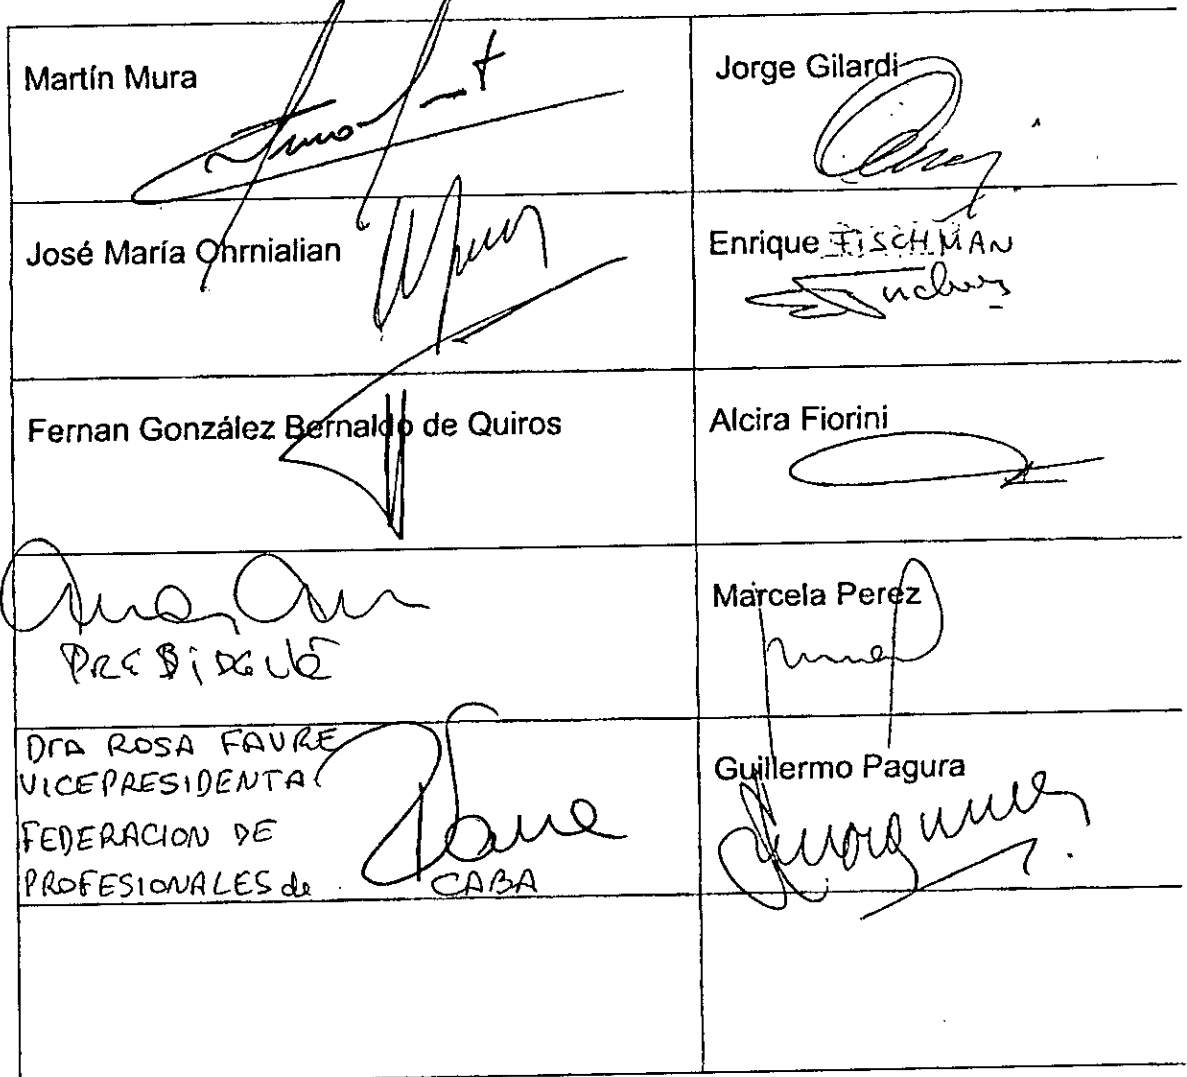 Martín Mura
Jorge Gilardi
José María Ohrnialian
Enrique FISCHMAN
Fernan González Bernaldo de Quiros
Alcira Fiorini
PRESIDENTE
Marcela Perez
Dra ROSA FAURE
VICEPRESIDENTA
FEDERACION DE
PROFESIONALES de CABA
Guillermo Pagura